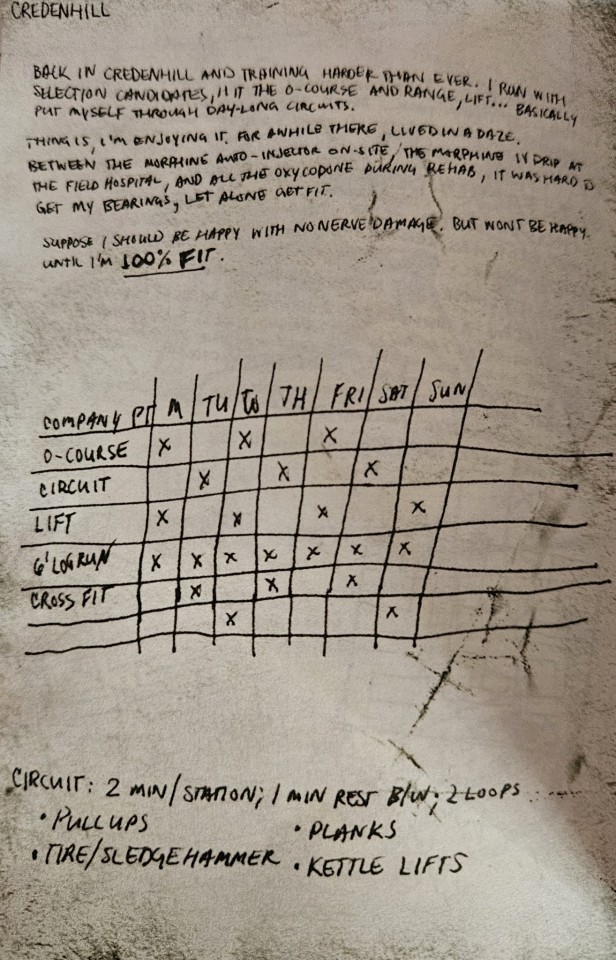 CREDENHILL
BACK IN CREDENHILL AND TRAINING HARDER THAN EVER. I RUN WITH
SELECTION CANDIDATES, HIT THE O-COURSE AND RANGE, LIFT... BASICALLY
PUT MYSELF THROUGH DAY-LONG CIRCUITS.
THING IS, I'M ENJOYING IT. FOR AWHILE THERE, LIVED IN A DAZE.
BETWEEN THE MORPHINE AUTO-INJECTOR ON-SITE, THE MORPHINE IV DRIP AT
THE FIELD HOSPITAL, AND ALL THE OXYCODONE DURING REHAB, IT WAS HARD TO
GET MY BEARINGS, LET ALONE GET FIT.
SUPPOSE I SHOULD BE HAPPY WITH NO NERVE DAMAGE. BUT WONT BE HAPPY
UNTIL I'M 100% FIT.
COMPANY PT M TU W TH FRI SAT SUN
O-COURSE X X X
CIRCUIT X X X
LIFT X X X X
6' LOG RUN X X X X X X X
CROSS FIT X X X
X X
CIRCUIT: 2 MIN/STATION; 1 MIN REST B/W; 2 LOOPS
• PULLUPS • PLANKS
• TIRE/SLEDGEHAMMER • KETTLE LIFTS